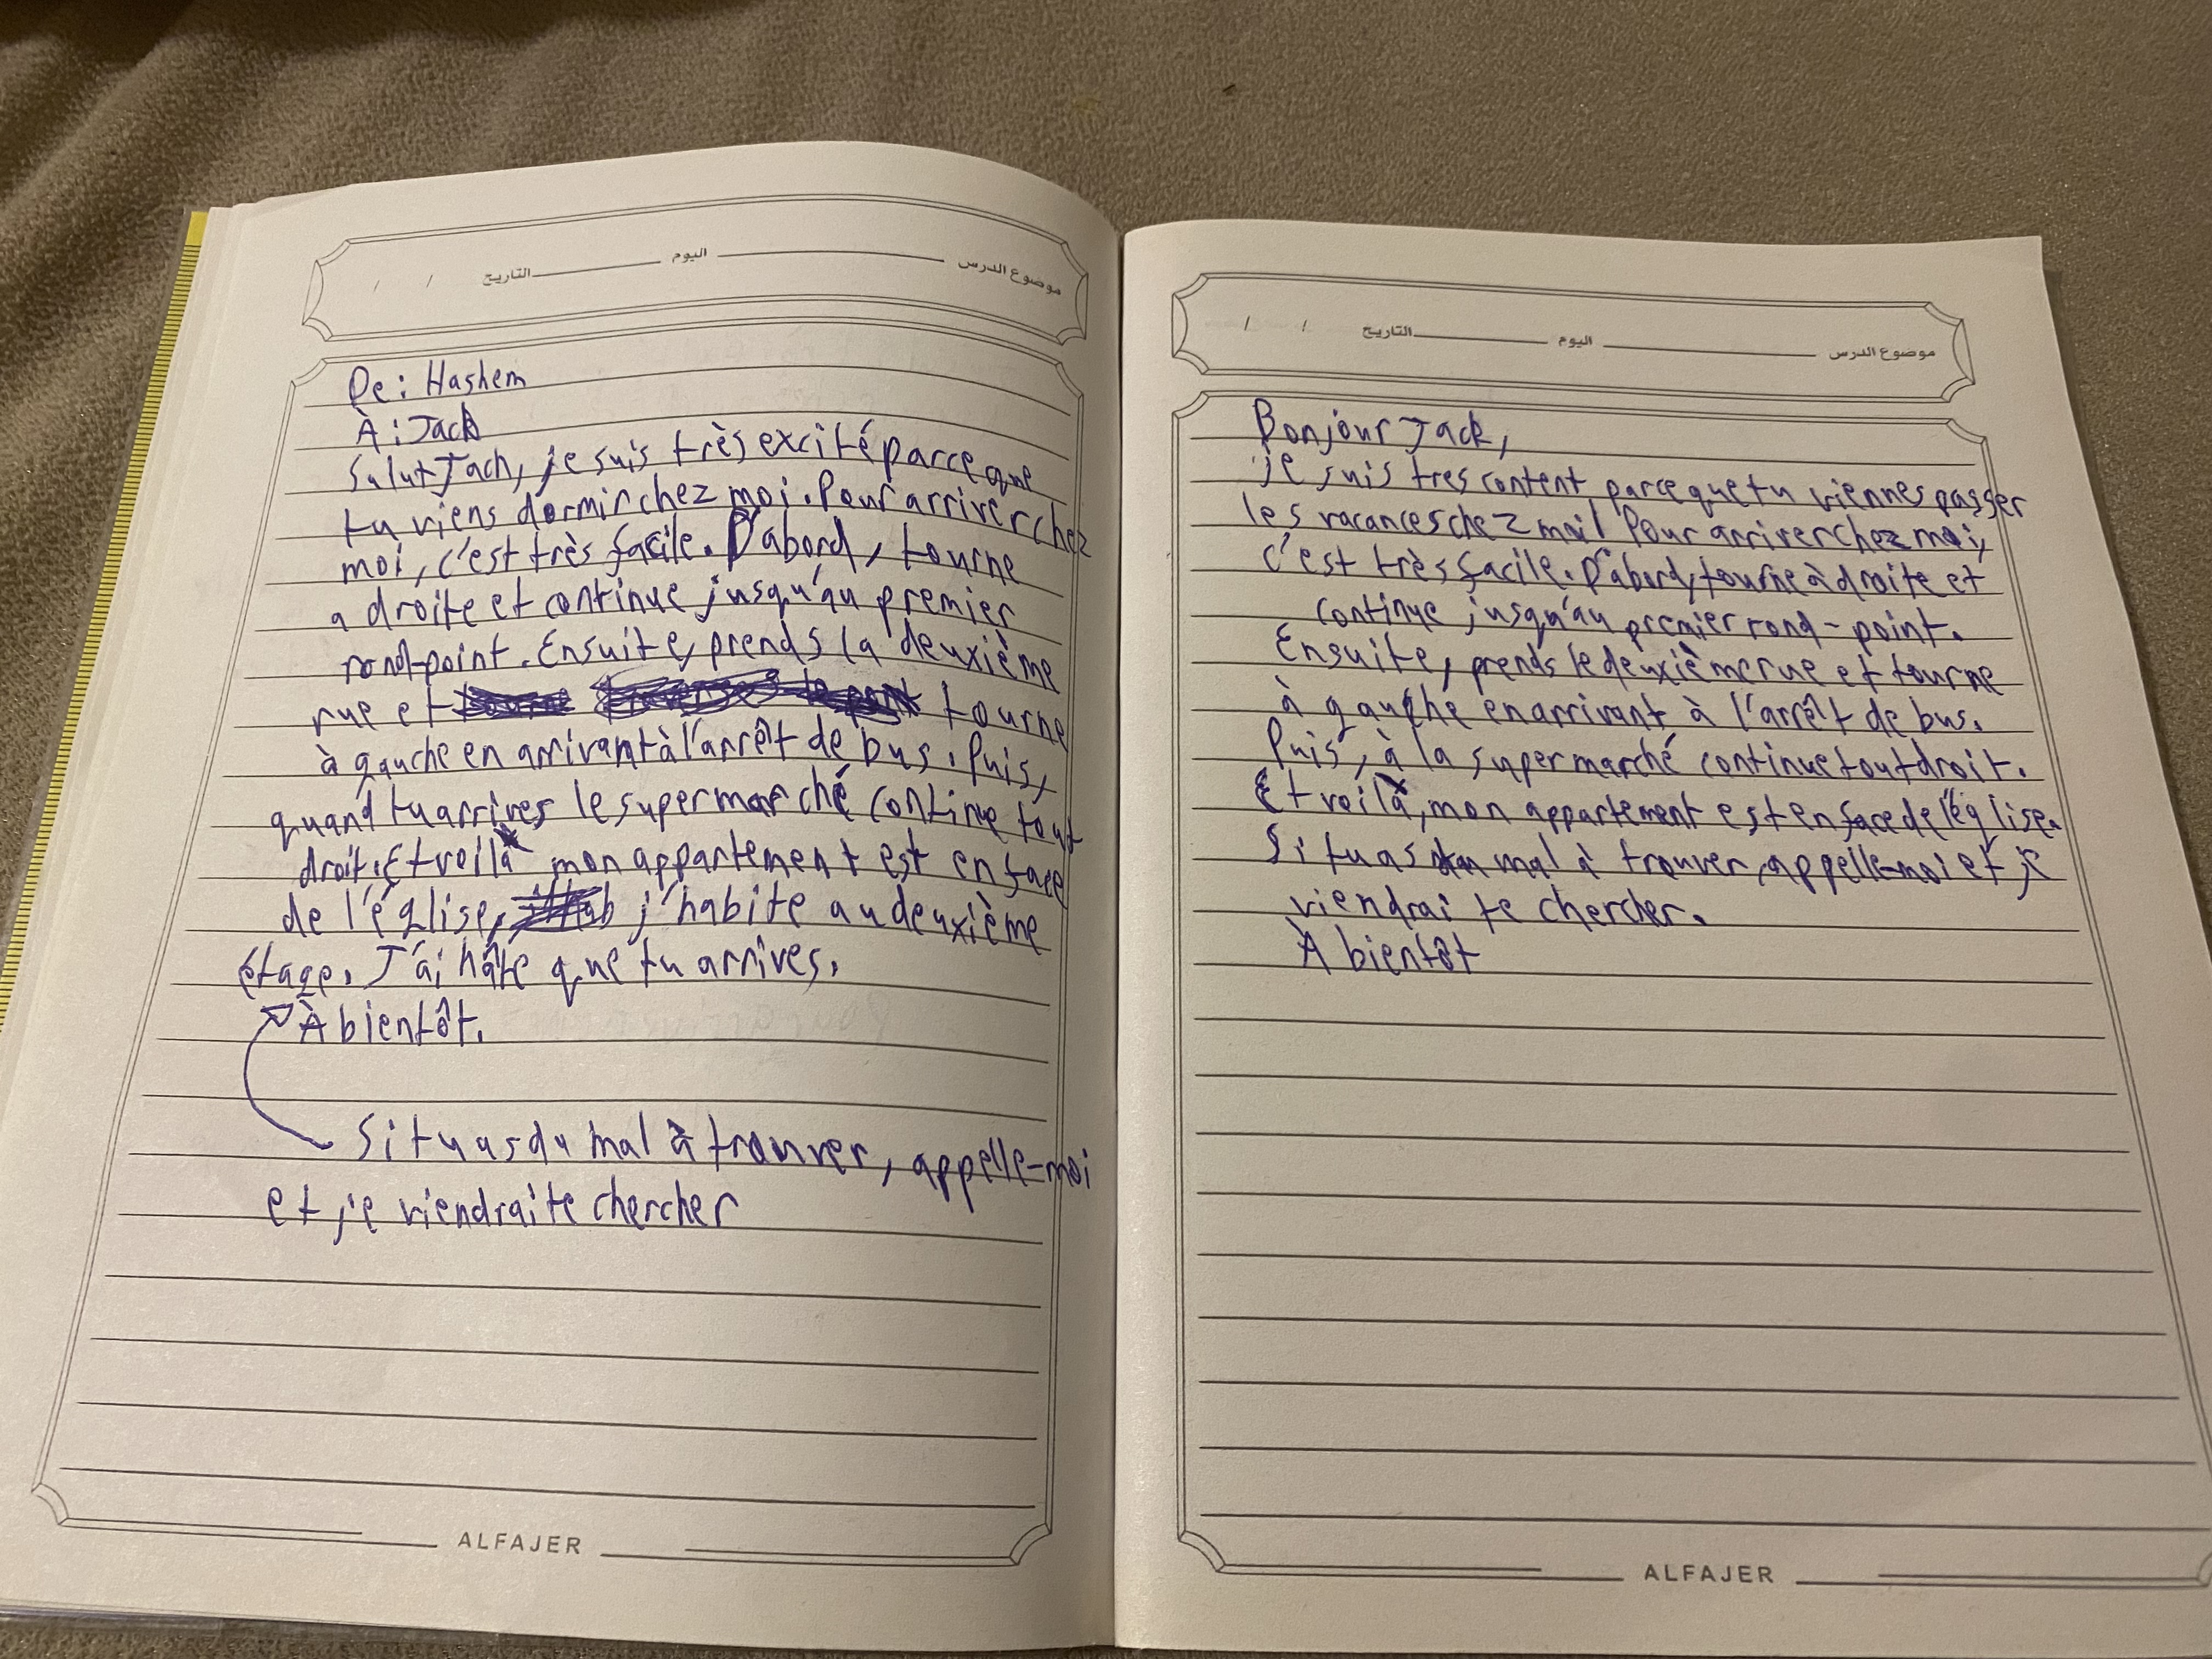 موضوع الدرس اليوم التاريخ / /
De: Hashem
À: Jack
Salut Jach, je suis très excité parce que
tu viens dormir chez moi. Pour arriver chez
moi, c'est très facile. D'abord, tourne
a droite et continue jusqu'au premier
rond-point. Ensuite, prends la deuxième
rue et tourne
à gauche en arrivant à l'arrêt de bus. Puis,
quand tu arrives le supermarché continue tout
droit. Et voilà mon appartement est en face
de l'église, j'habite au deuxième
étage. J'ai hâte que tu arrives.
À bientôt.
Si tu as du mal à trouver, appelle-moi
et je viendrai te chercher
ALFAJER
موضوع الدرس اليوم التاريخ / /
Bonjour Jack,
je suis tres content parce que tu viennes passer
les vacances chez moi! Pour arriver chez moi,
c'est très facile. D'abord, tourne à droite et
continue jusqu'au premier rond-point.
Ensuite, prends le deuxième rue et tourne
à gauche en arrivant à l'arrêt de bus.
Puis, à la supermarché continue tout droit.
Et voilà, mon appartement est en face de l'église.
Si tu as du mal à trouver, appelle-moi et je
viendrai te chercher.
À bientôt
ALFAJER